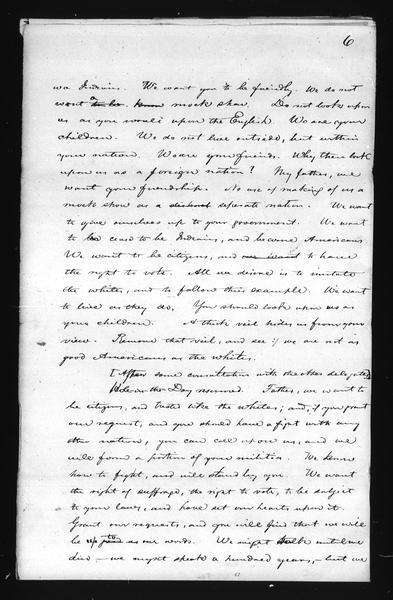 6
wa Indians. We want you to be friendly. We do not
want to be mock show. Do not look upon
us as you would upon the English. We are your
children. We do not live outside, but within
your nation. We are your friends. Why then look
upon us as a foreign nation? My father, we
want your friendship. No use of making of us a
mock show as a seperate nation. We want
to give ourselves up to your government. We want
to cease to be Indians, and become Americans
We want to be citizens, and to have
the right to vote. All we desire is to imitate
the whites, and to follow their example. We want
to live as they do. You should look upon us as
your children. A thick veil hides us from your
view. Remove that veil, and see if we are not as
good Americans as the whites.
[After some consultation with the other delegates]
Hole-in-the-Day resumed. Father, we want to
be citizens, and treated like the whites; and, if you grant
our request, and you should have a fight with any
other nation, you can call upon us, and we
will form a portion of your militia. We know
how to fight, and will stand by you. We want
the right of suffrage, the right to vote, to be subject
to your laws, and have set our hearts upon it.
Grant our requests, and you will find that we will
be up to our words. We might talk until we
died — we might speak a hundred years, — but we